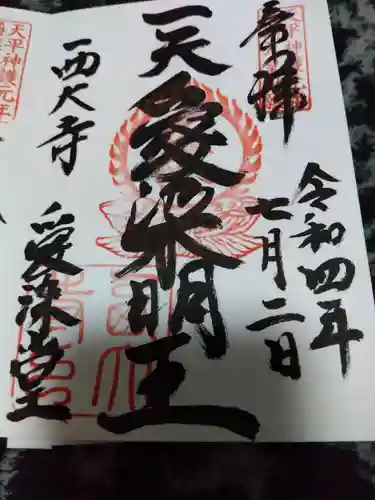 奉拝
天平神護元年
令和四年
七月二日
天愛染明王
西大寺
愛染堂
天平神護元年